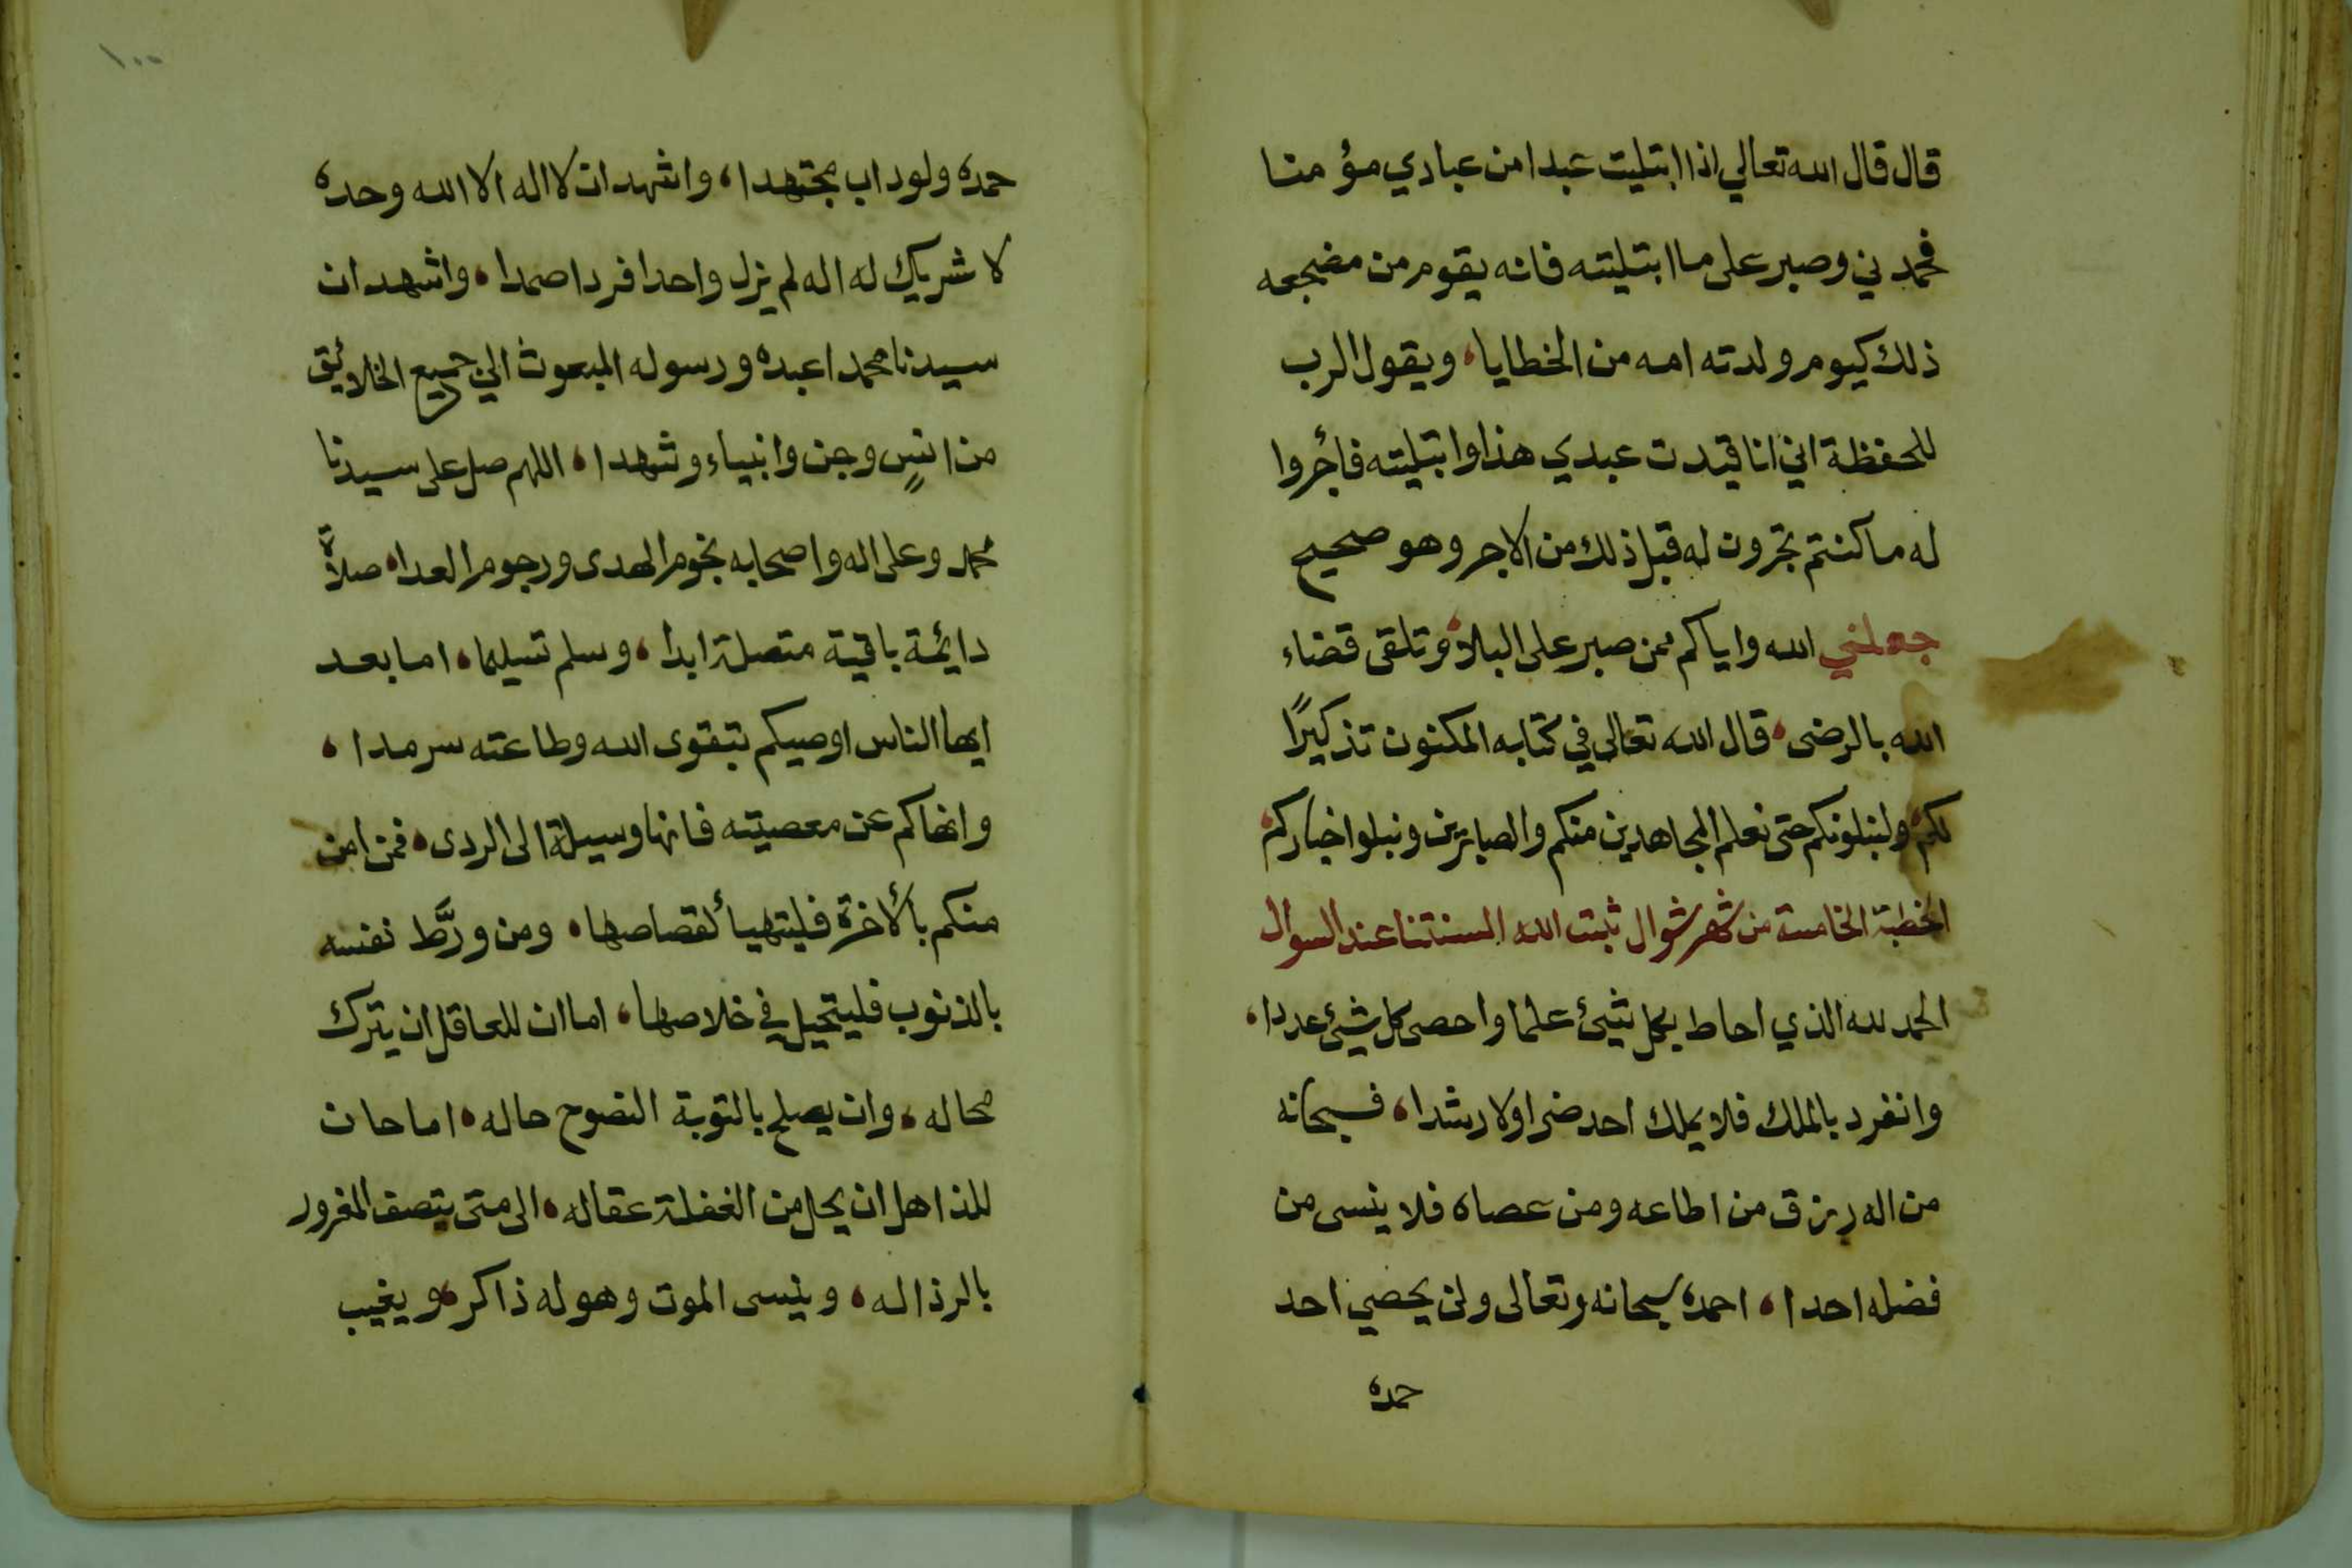 قال قال الله تعالي اذا ابتليت عبدا من عبادي مؤمنا
فحمدني وصبر على ما ابتليته فانه يقوم من مضجعه
ذلك كيوم ولدته امه من الخطايا، ويقول الرب
للحفظة اني انا قيدت عبدي هذا وابتليته فأجروا
له ما كنتم تجرون له قبل ذلك من الاجر وهو صحيح
جعلني الله واياكم ممن صبر على البلاء وتلقى قضاء
الله بالرضى، قال الله تعالى في كتابه المكنون تذكيرًا
لكم، ولنبلونكم حتى نعلم المجاهدين منكم والصابرين ونبلوا خباركم،
الخطبة الخامسة من شهر شوال ثبت الله السنتنا عند السوال
الحمد لله الذي احاط بكل شيئ علما واحصى كل شيئ عددا،
وانفرد بالملك فلا يملك احد ضرا ولا رشدا، فسبحانه
من اله رزق من اطاعه ومن عصاه فلا ينسى من
فضله احدا، احمده سبحانه وتعالى ولن يحصي احد
حمده
١٠٠
حمده ولو داب مجتهدا، واشهد ان لا اله الا الله وحده
لا شريك له اله لم يزل واحدا فردا صمدا، واشهد ان
سيدنا محمدا عبده ورسوله المبعوث الي جميع الخلائق
من انسٍ وجن وانبياء وشهدا، اللهم صل على سيدنا
محمد وعلى اله واصحابه نجوم الهدى ورجوم العدا، صلاةً
دايمة باقية متصلة ابدا، وسلم تسليما، اما بعد
ايها الناس اوصيكم بتقوى الله وطاعته سرمدا،
وانهاكم عن معصيته فانها وسيلة الى الردى، فمن امن
منكم بالأخرة فليتهيأ لقصاصها، ومن ورَّط نفسه
بالذنوب فليتحيل في خلاصها، اما ان للعاقل ان يترك
محاله، وان يصلح بالتوبة النصوح حاله، اما حان
للذاهل ان يحل من الغفلة عقاله، الى متى يتصف المغرور
بالرذاله، وينسى الموت وهو له ذاكر، ويغيب